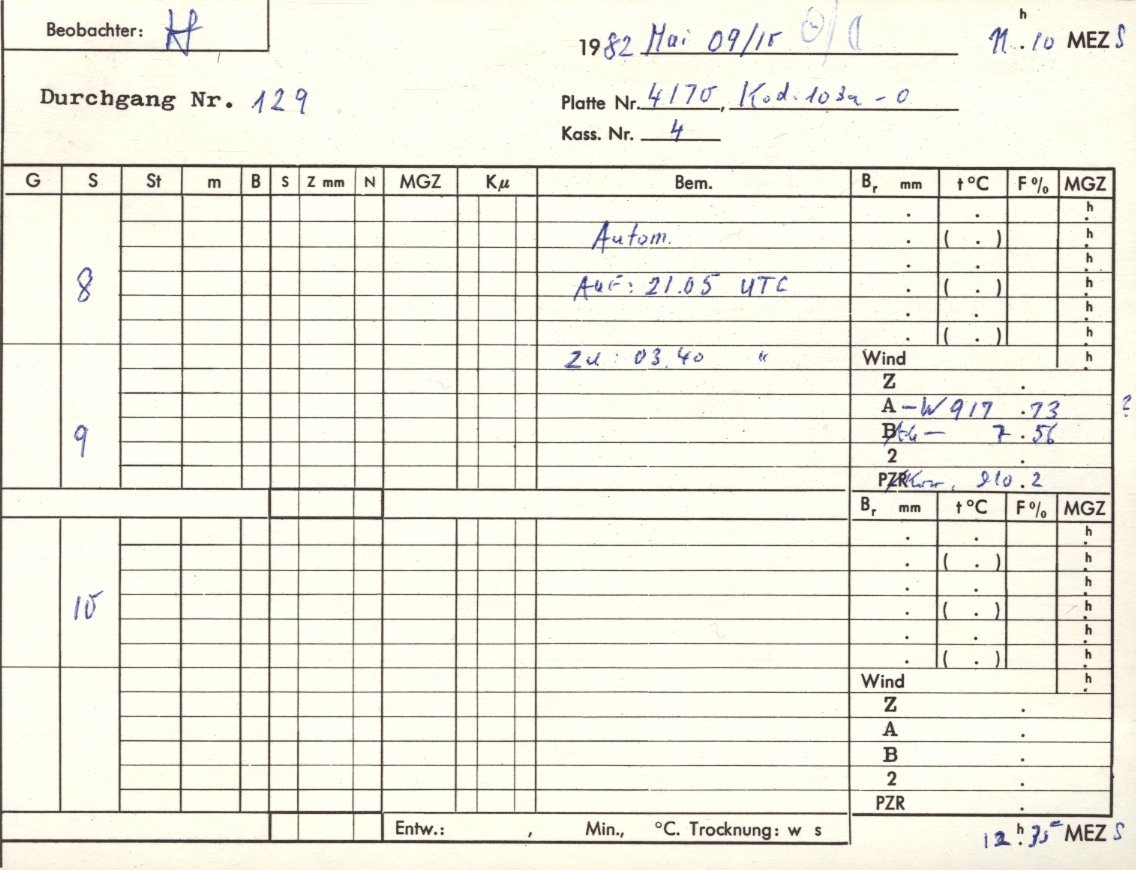 Beobachter: H
1982 Mai 09/10
11h.10 MEZ S
Durchgang Nr. 129
Platte Nr. 4170, Kod. 103a-0
Kass. Nr. 4
G S St m B S Z mm N MGZ Kμ Bem. Br mm t°C F% MGZ
. . h
Autom. . ( . ) h
. . h
8 Auf: 21.05 UTC . ( . ) h
. . h
. ( . ) h
Zu: 03.40 " Wind h
Z .
A -W 917 .73 ?
9 B 7.56
2 .
PZR Korr. 910.2
Br mm t°C F% MGZ
. . h
. ( . ) h
. . h
10 . ( . ) h
. . h
. ( . ) h
Wind h
Z .
A .
B .
2 .
PZR .
Entw.: , Min., °C. Trocknung: w s
12h.35 MEZ S